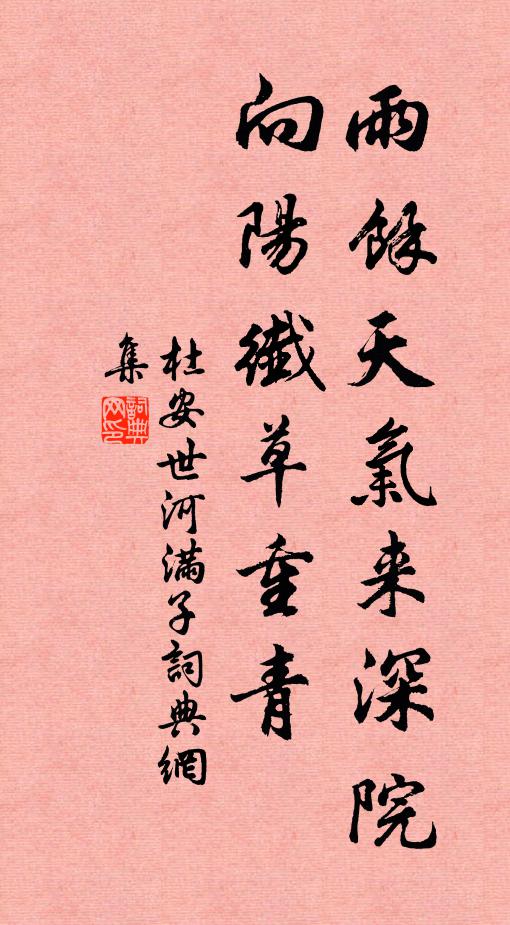 雨餘天氣来深院
向陽纖草重青
杜安世河满子詞典網
集
詞典
网印